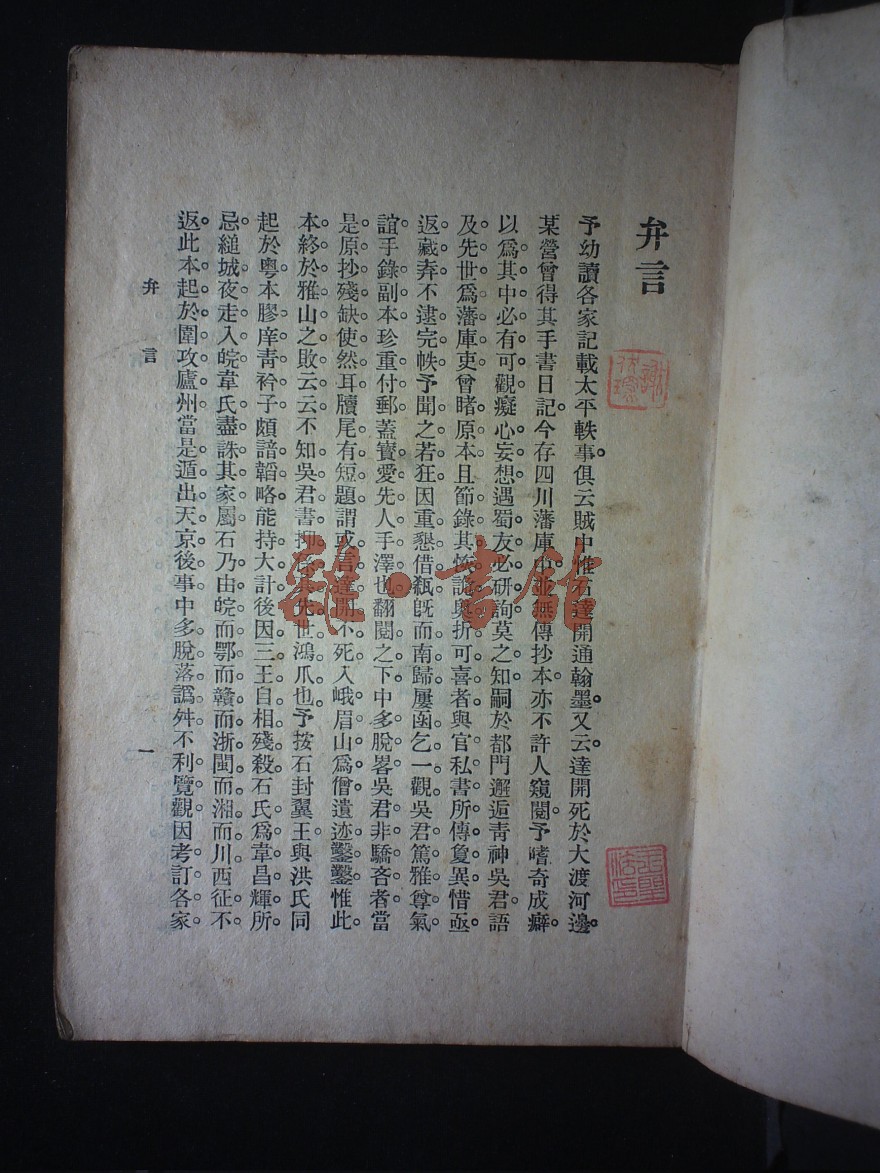 弁言
予幼讀各家記載太平軼事。俱云賊中惟石達開通翰墨。又云。達開死於大渡河邊。
某營曾得其手書日記。今存四川藩庫中。並無傳抄本。亦不許人窺閱。予嗜奇成癖。
以爲其中必有可觀。癡心妄想。遇蜀友必研詢。莫之知。嗣於都門邂逅靑神吳君。語
及先世爲藩庫吏。曾睹原本。且節錄其恢詭奧折可喜者。與官私書所傳敻異。惜亟
返。藏弆不逮完帙。予聞之若狂。因重懇借瓻。旣而南歸。屢函乞一觀。吳君篤雅尊氣
誼。手錄副本。珍重付郵。蓋寶愛先人手澤也。翻閱之下。中多脫畧。吳君非驕吝者。當
是原抄殘缺使然耳。牘尾有短題。謂或言達開不死。入峨眉山爲僧。遺迹鑿鑿。惟此
本終於雅山之敗云云。不知吳君書抑爲其先世鴻爪也。予按石封翼王。與洪氏同
起於粵。本膠庠靑衿子。頗諳韜略。能持大計。後因三王自相殘殺。石氏爲韋昌輝所
忌。縋城夜走入皖。韋氏盡誅其家屬。石乃由皖而鄂而贛而浙閩而湘而川。西征不
返。此本起於圍攻廬州。當是遁出天京後事。中多脫落譌舛。不利覽觀。因考訂各家
弁言
一
雜·書館